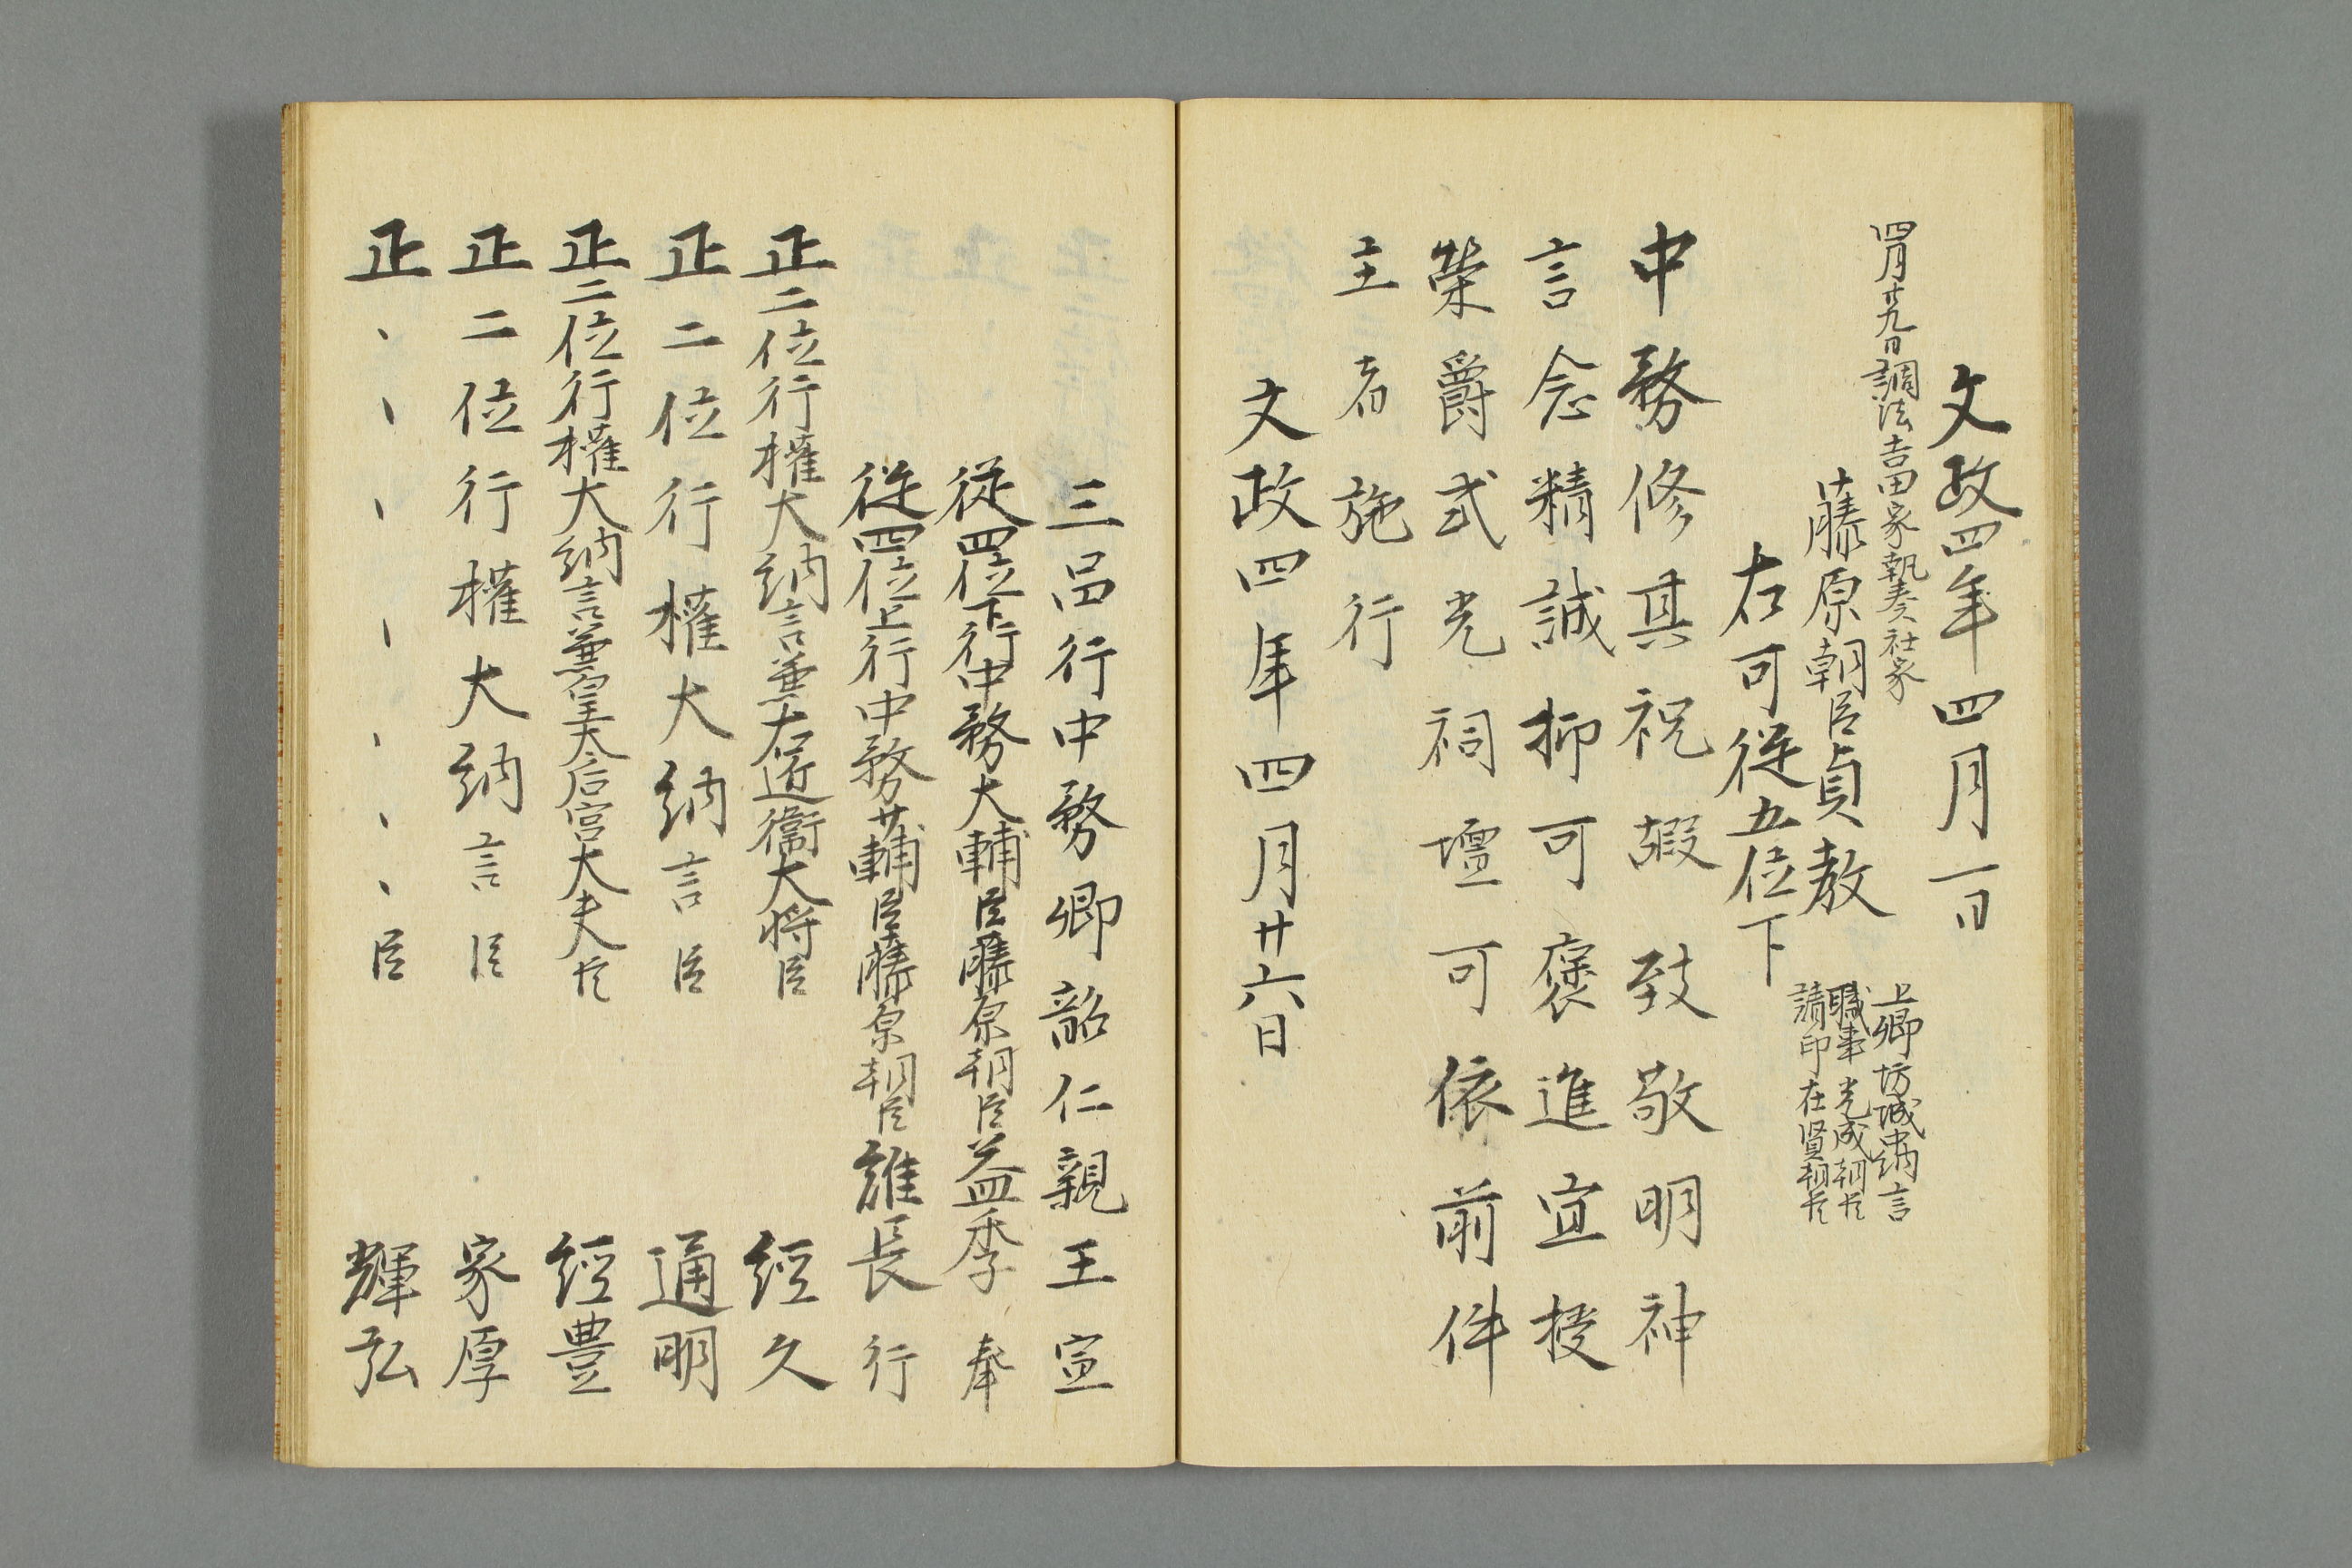 文政四年四月一日
四月廿九日調法吉田家執奏社家
藤原朝臣貞教
上卿坊城中納言
職事光成朝臣
請印在賢朝臣
右可従五位下
中務修其祝嘏致敬明神
言念精誠抑可褒進宜授
榮爵式光祠壇可依前件
主者施行
文政四年四月廿六日
三品行中務卿韶仁親王宣
従四位下行中務大輔臣藤原朝臣益季奉
従四位上行中務少輔臣藤原朝臣誰長行
正二位行權大納言兼右近衛大将臣 經久
正二位行權大納言臣 通明
正二位行權大納言兼皇太后宮大夫臣 經豊
正二位行權大納言臣 家厚
正、、、、、、、臣 輝弘